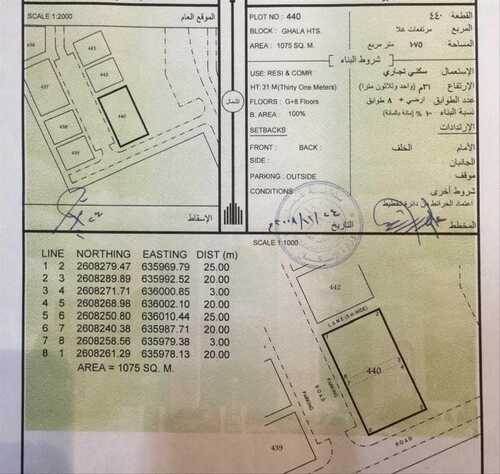 SCALE 1:2000
الموقع العام
443
441
442
437
440
438
439
الشمال
الإسقاط
PLOT NO : 440
القطعة : ٤٤٠
BLOCK : GHALA HTS.
المربع : مرتفعات غلا
AREA : 1075 SQ. M.
المساحة : ١٠٧٥ متر مربع
شروط البناء
USE: RESI & COMR
الاستعمال : سكني تجاري
HT: 31 M (Thiny One Meters)
الارتفاع : ٣١م (واحد وثلاثون مترا)
FLOORS : G+8 Floors
عدد الطوابق : ارضي + ٨ طوابق
B. AREA : 100%
نسبة البناء
SETBACKS
الإرتدادات
FRONT :
BACK :
الخلف
الأمام
SIDE :
الجانبان
PARKING : OUTSIDE
موقف
CONDITIONS
شروط أخرى
التاريخ
المخطط
SCALE 1:1000
LINE NORTHING EASTING DIST (m)
1 2 2608279.47 635969.79 25.00
2 3 2608289.89 635992.52 20.00
3 4 2608271.71 636000.85 3.00
4 5 2608268.98 636002.10 20.00
5 6 2608250.80 636010.44 25.00
6 7 2608240.38 635987.71 20.00
7 8 2608258.56 635979.38 3.00
8 1 2608261.29 635978.13 20.00
AREA = 1075 SQ. M.
442
LANE (5 m WIDE)
PARKING
ROAD
PARKING
440
ROAD
439